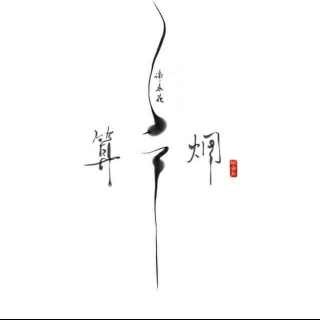 谢春花
算云烟